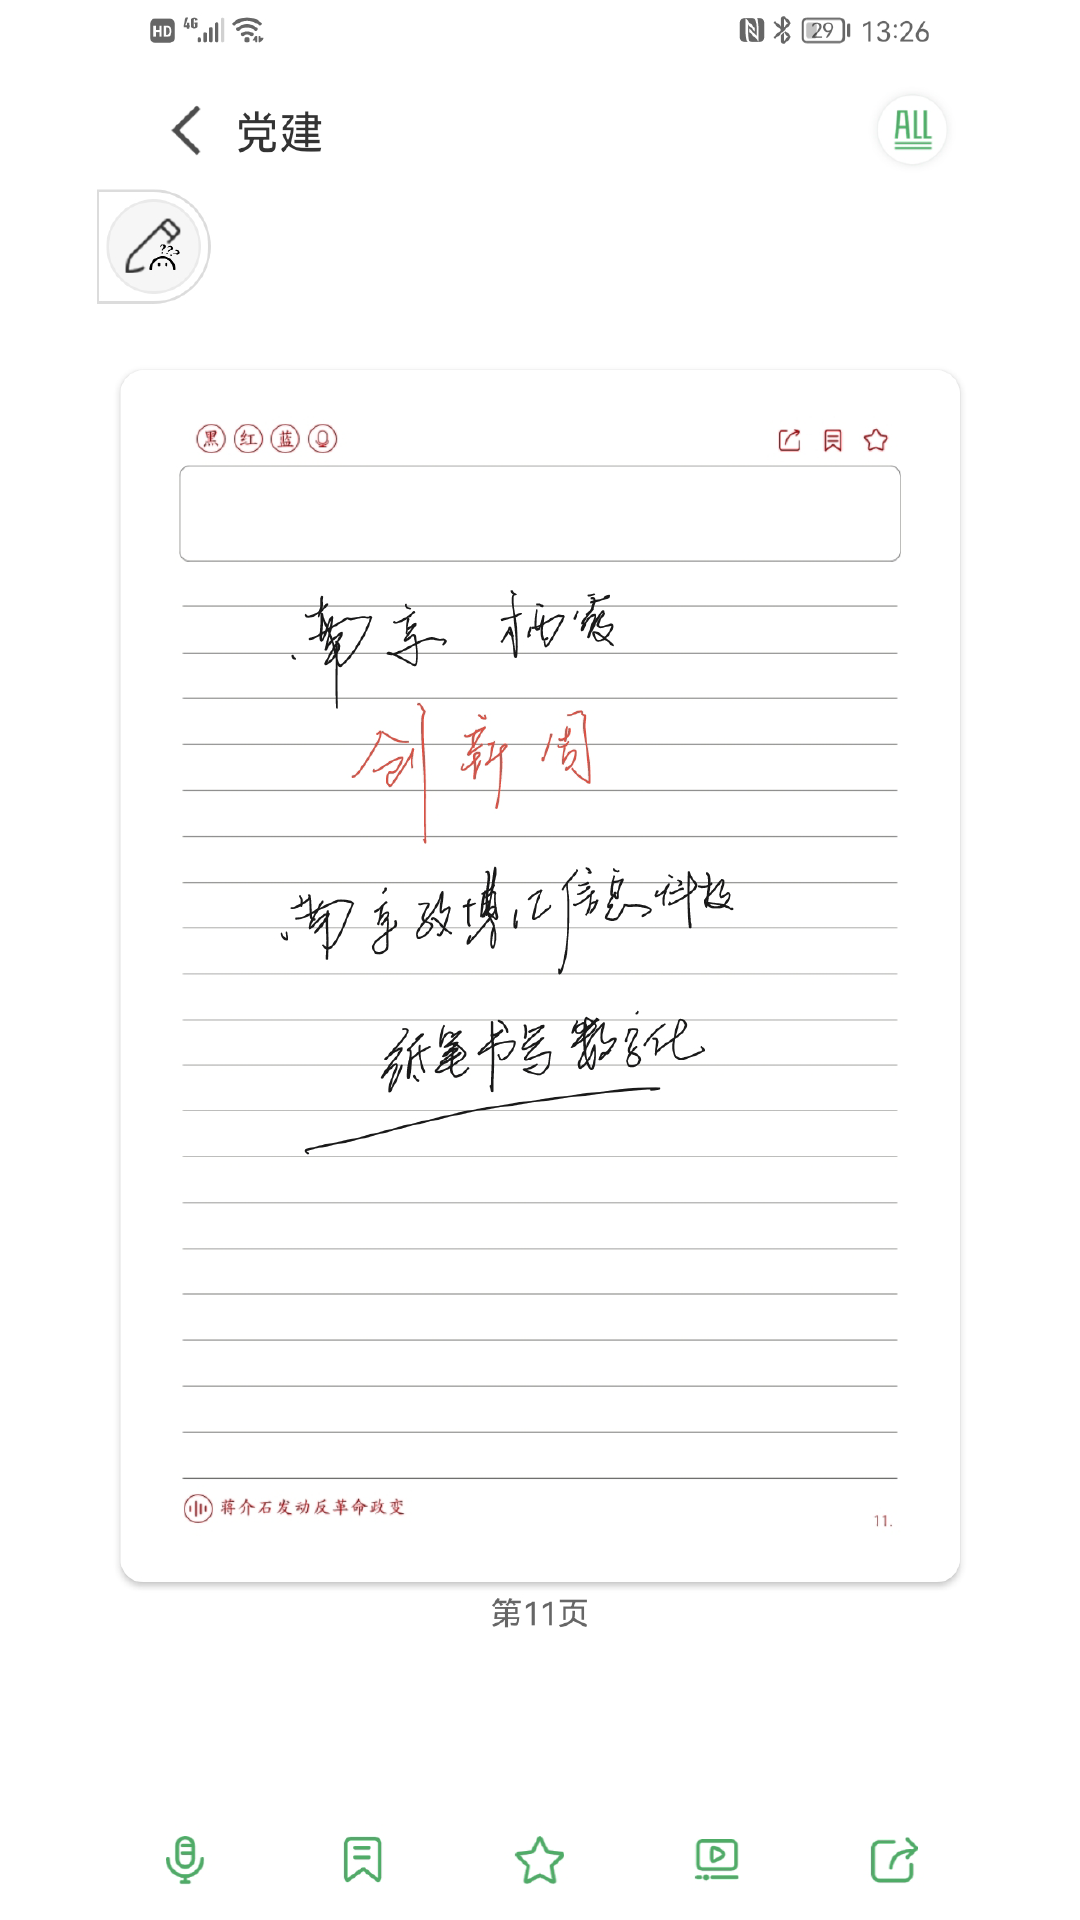 HD 4G 29 13:26
党建
ALL
黑 红 蓝
南京 栖霞
创新周
南京政博汇信息科技
纸笔书写数字化
蒋介石发动反革命政变
11.
第11页